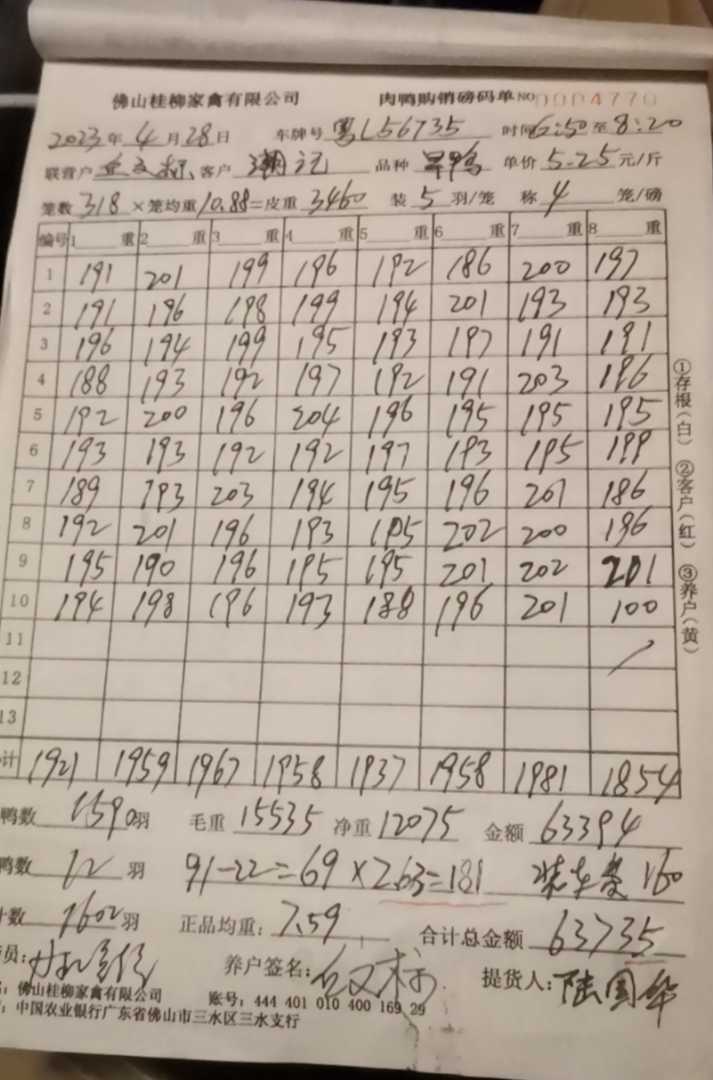 佛山桂柳家禽有限公司 肉鸭购销磅码单 NO 0004770
2023年4月28日 车牌号 粤L56735 时间 6:50至8:20
联营户 客户 潮记 品种 旱鸭 单价 5.25 元/斤
笼数 318 ×笼均重 10.88 =皮重 3460 装 5 羽/笼 称 4 笼/磅
编号 1 重 2 重 3 重 4 重 5 重 6 重 7 重 8 重
1 191 201 199 196 192 186 200 197
2 191 196 198 199 194 201 193 193
3 196 194 199 195 193 197 191 191
4 188 193 192 197 192 191 203 196
5 192 200 196 204 196 195 195 195
6 193 193 192 192 197 193 195 199
7 189 193 203 194 195 196 201 186
8 192 201 196 193 195 202 200 196
9 195 190 196 195 195 201 202 201
10 194 198 196 193 188 196 201 100
11
12
13
计 1921 1959 1967 1958 1937 1958 1981 1854
鸭数 1590 羽 毛重 15535 净重 12075 金额 63394
鸭数 12 羽 91-22=69×2.63=181 装车费 160
计数 1602 羽 正品均重: 7.59 合计总金额 63735
员: 养户签名: 提货人: 陆国华
: 佛山桂柳家禽有限公司 账号: 444 401 010 400 169 29
: 中国农业银行广东省佛山市三水区三水支行
①存根(白) ②客户(红) ③养户(黄)